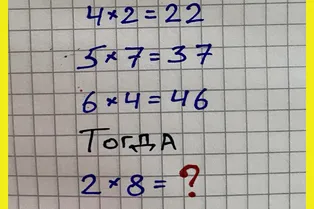 4*2=22
5*7=37
6*4=46
Тогда
2*8=?